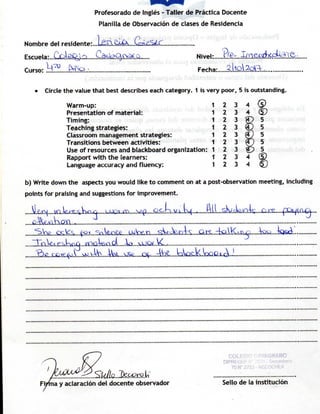 Profesorado de Inglés - Taller de Práctica Docente
Planilla de Observación de clases de Residencia
Nombre del residente: Leticia
Escuela: Colegio Nivel: Pre-Intermediate
Curso: 4to Año Fecha: 2/10/2017
• Circle the value that best describes each category. 1 is very poor, 5 is outstanding.
Warm-up: 1 2 3 4 5
Presentation of material: 1 2 3 4 5
Timing: 1 2 3 4 5
Teaching strategies: 1 2 3 4 5
Classroom management strategies: 1 2 3 4 5
Transitions between activities: 1 2 3 4 5
Use of resources and blackboard organization: 1 2 3 4 5
Rapport with the learners: 1 2 3 4 5
Language accuracy and fluency: 1 2 3 4 5
b) Write down the aspects you would like to comment on at a post-observation meeting, including
points for praising and suggestions for improvement.
Very interesting warm up activity. All students are paying
attention.
She asks for silence when students are talking too loud.
Interesting material to work
Be careful with the use of the blackboard!
Stella
Firma y aclaración del docente observador Sello de la institución